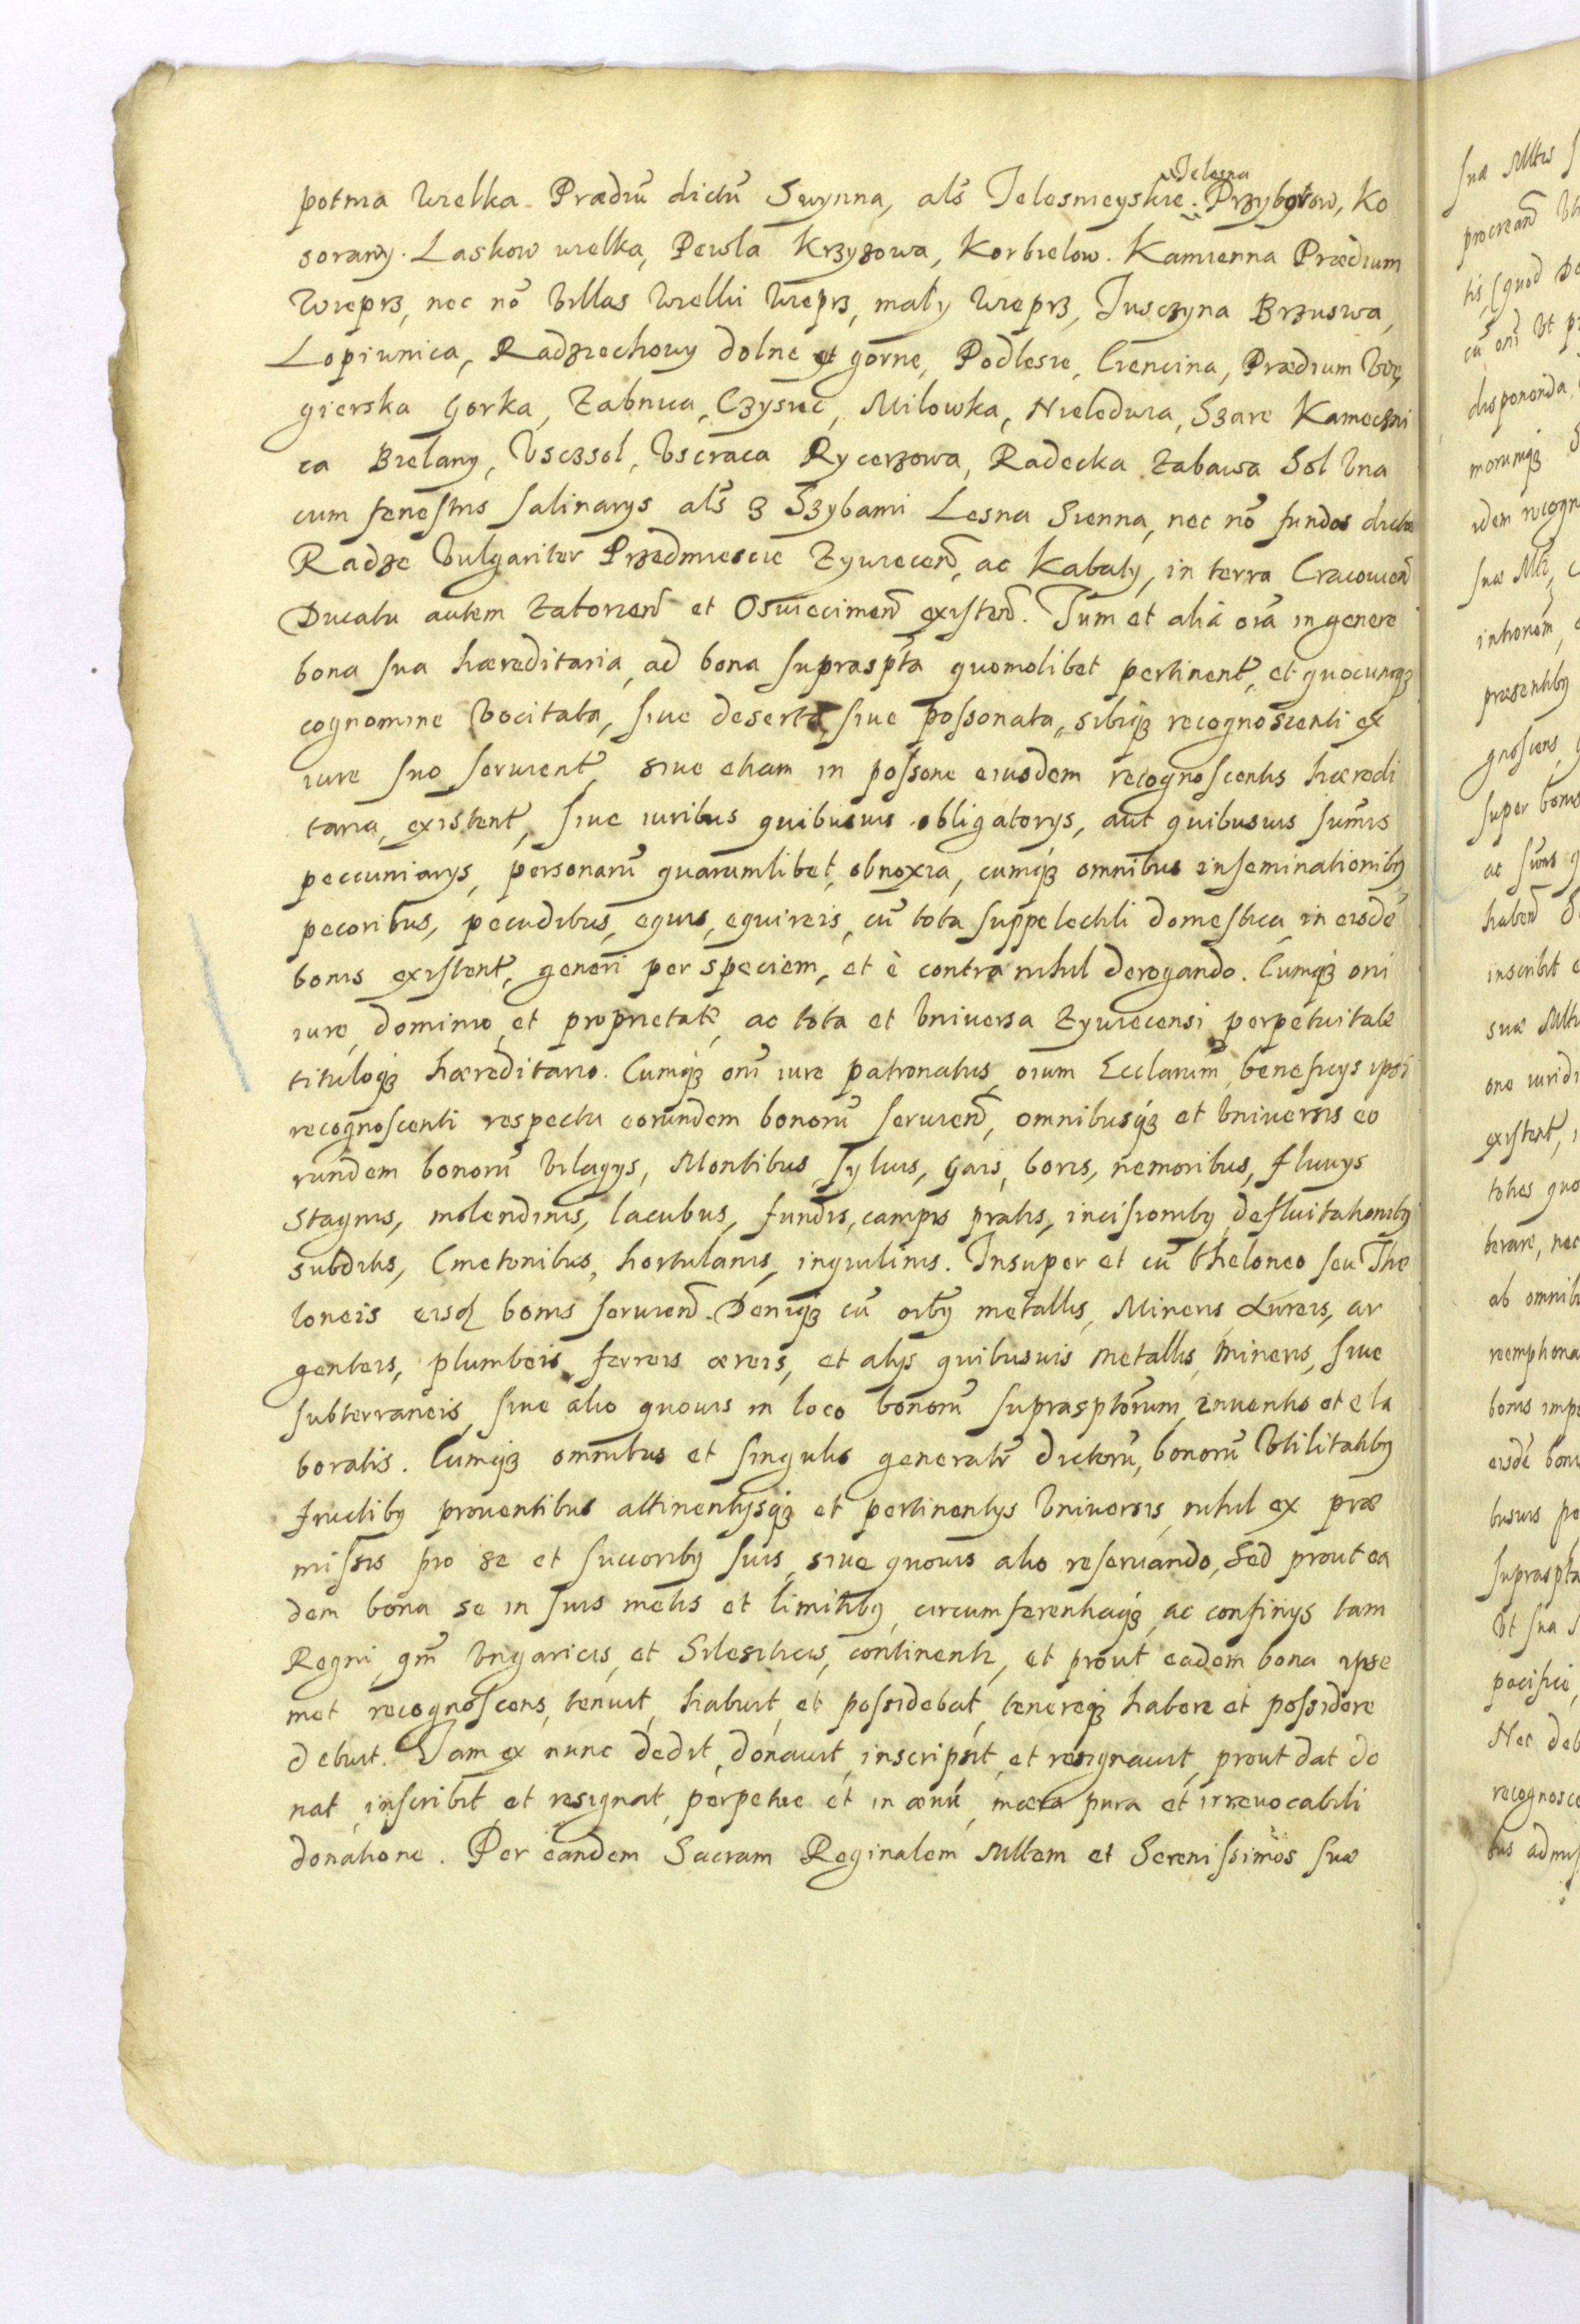 Jelesna
potma Wielka. Prædiũ dictũ Swynna, als̃ Jelesnieyskie. Przybyłow, Ko
sorawy. Laskow wielka, Pewla Krzyzowa, Korbielow. Kamienna Prædium
Wieprz, nec nõ Villas Wielki Wieprz, mały Wieprz, Jusczyna Brzuswa,
Lopiunica, Radziechowy dolne et gorne, Podlesie, Ciencina, Prædium Wę,
gierska Gorka, Zabnica, Czysiec, Milowka, Nieledwia, Szare Kameczni
ca Bielany, Vsczsol, Vscraca Rycerzowa, Radecka Zabawa Sol Vna
cum fenestris salinarys als̃ z Szybami Lesna Sienna, nec nõ fundos dictos
Radze Vulgariter Przedmiescie Zywiecen̄, ac Kabaty, in terra Cracovien̄
Ducatu autem Zatorien̄ et Oswiecimen̄ existen̄. Tum et alia oĩa in genere
bona sua hæreditaria, ad bona supraspta quomolibet pertinent̃, et quocunqʒ
cognomine Vocitata, siue deserta, siue possonata, sibiqʒ recognoscenti ex
iure suo seruient̃, siue etiam in possone eiusdem recognoscentis hæredi
taria, existent̃, siue iuribus quibusuis obligatorys, aut quibusuis sum̃is
peccuniarys, personarũ quarumlibet, obnoxia, cumqʒ omnibus inseminationibʒ
pecoribus, pecudibus, equis, equireis, cũ tota suppelectili domestica in eisdẽ
bonis existent̃, generi per speciem, et è contra nihil derogando. Cumqʒ oni
iure, dominio, et proprietate, ac tota et Vniuersa Zywiecensi perpetuitate
tituloqʒ hæreditario. Cumqʒ oñi iure patronatus, oium Ecclarum̃, beneficys ipsi
recognoscenti respectu eorundem bonorũ seruien̄, omnibusqʒ et Vniuersis eo
rundem bonorũ Vilagys, Montibus syluis, Gais, boris, nemoribus, fluuys
stagnis, molendinis, lacubus, fundis, campis pratis, incisionibʒ defluitationibʒ
subditis, Cmetonibus, hortulanis, inquilinis. Insuper et cũ theloneo seu The
loneis eisd bonis seruien̄. Deniqʒ cũ oĩbʒ metallis, Mineris Aureis, ar
genteis, plumbeis, ferreis æreis, et alys quibusuis metallis, mineris, siue
subterraneis siue alio quouis in loco bonorũ supraspt̃orum, inuentis et ela
boratis. Cumqʒ omnibus et singulis generalr̃ dictorũ, bonorũ Vtilitatibʒ
fructibʒ prouentibus attinentysqʒ et pertinentys Vniuersis, nihil ex præ
missis pro se et succoribʒ suis, siue quouis alio reseruando, Sed prout ea
dem bona se in suis metis et limitibʒ, circumferentiaqʒ, ac confinys tam
Regni, qm̃ Vngaricis, et Silesiticis, continentr, et prout eadem bona ipse
met recognoscens, tenuit, habuit, et possidebat, tenereqʒ habere et possidere
debuit. Jam ex nunc dedit, donauit, inscripsit, et resignauit, prout dat do
nat, inscribit, et resignat, perpetue et in æuũ, mæra pura et irreuocabili
donatione. Per eandem Sacram Reginalem Mttem et Serenissimos suæ